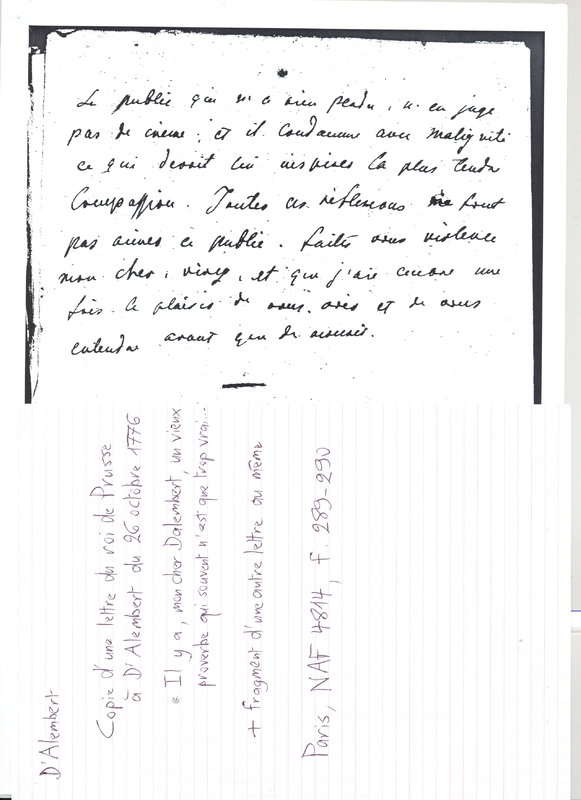 Le public qui n'a rien perdu, n'en juge
pas de meme; et il condamne avec malignité
ce qui devroit lui inspirer la plus tendre
Compassion. Toutes ces réflexions ne font
pas aimer ce public. faites vous violence
mon cher, vivez, et que j'aie encore une
fois le plaisir de vous voir et de vous
entendre avant que de mourir.
D'Alembert
Copie d'une lettre du roi de Prusse
à D'Alembert du 26 octobre 1776
« Il y a, mon cher Dalembert, un vieux
proverbe qui souvent n'est que trop vrai...
+ fragment d'une autre lettre au même
Paris, NAF 4814, f. 289-290